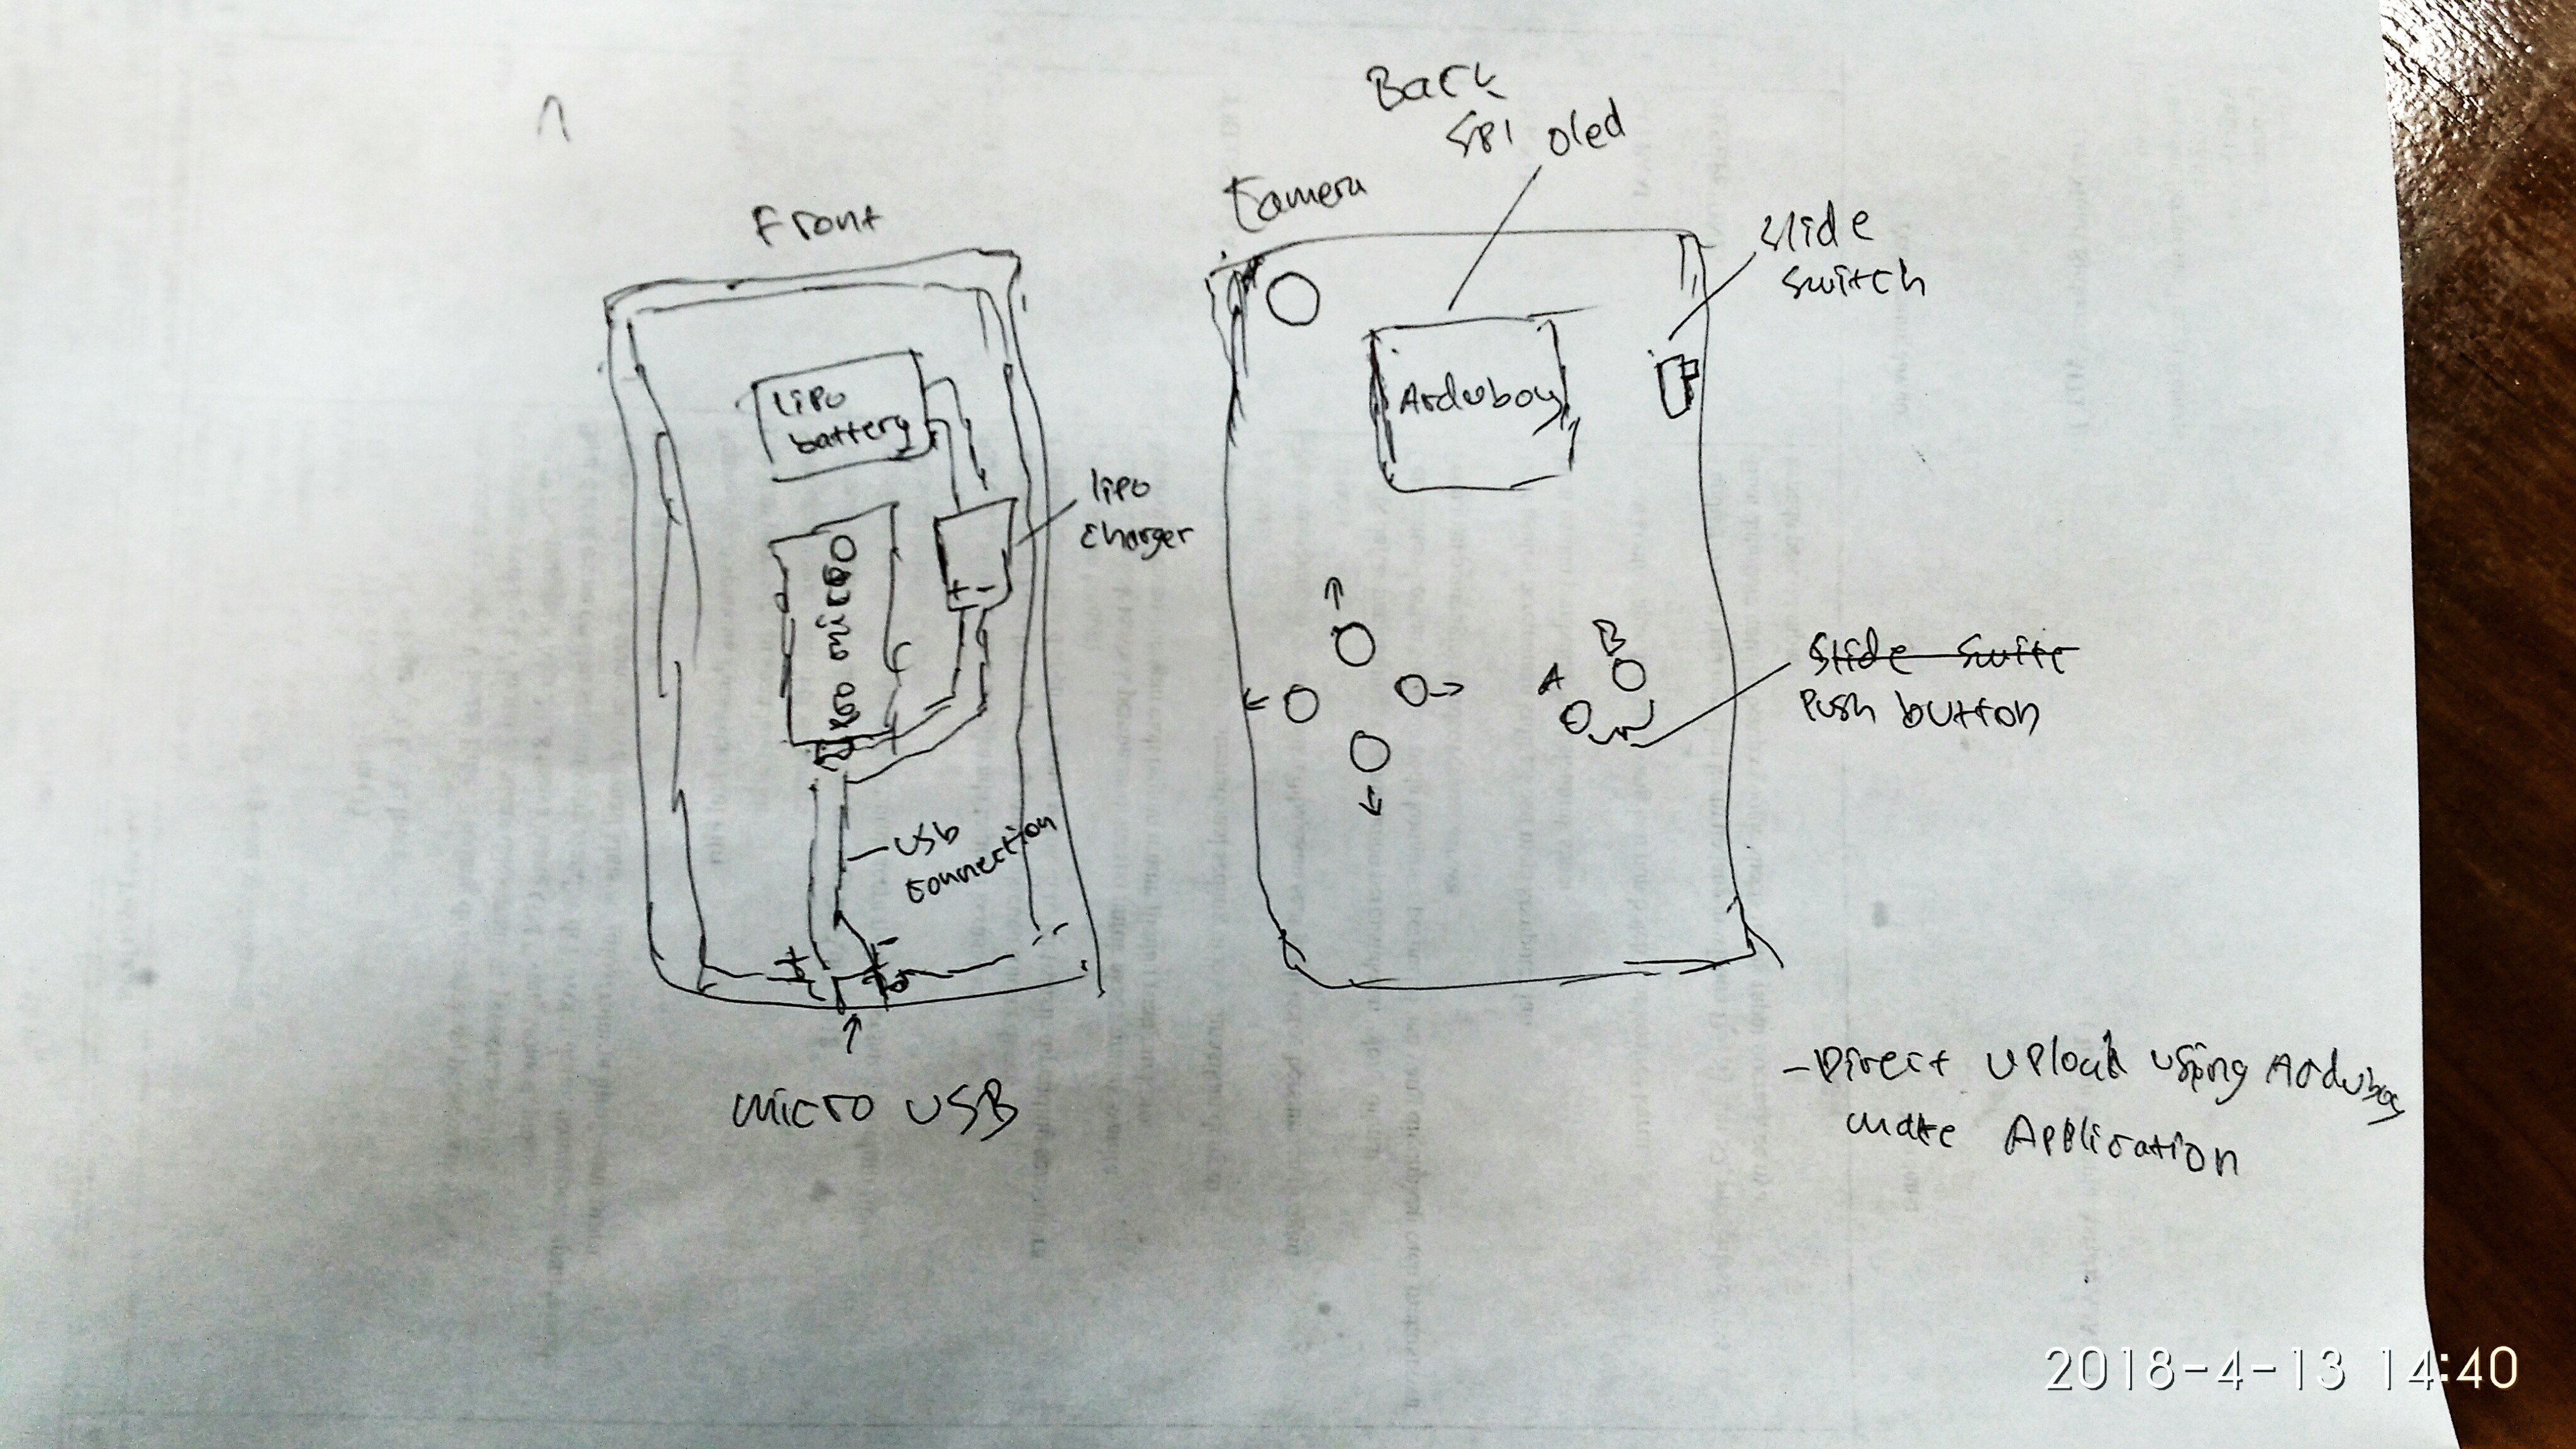 Front
Lipo
battery
lipo
charger
pro micro
USb
connection
+ -
micro USB
Back
SPI oled
Camera
slide
switch
Arduboy
B
A
Slide Switc
Push button
- Direct Upload using Arduboy
mate Application
2018-4-13 14:40